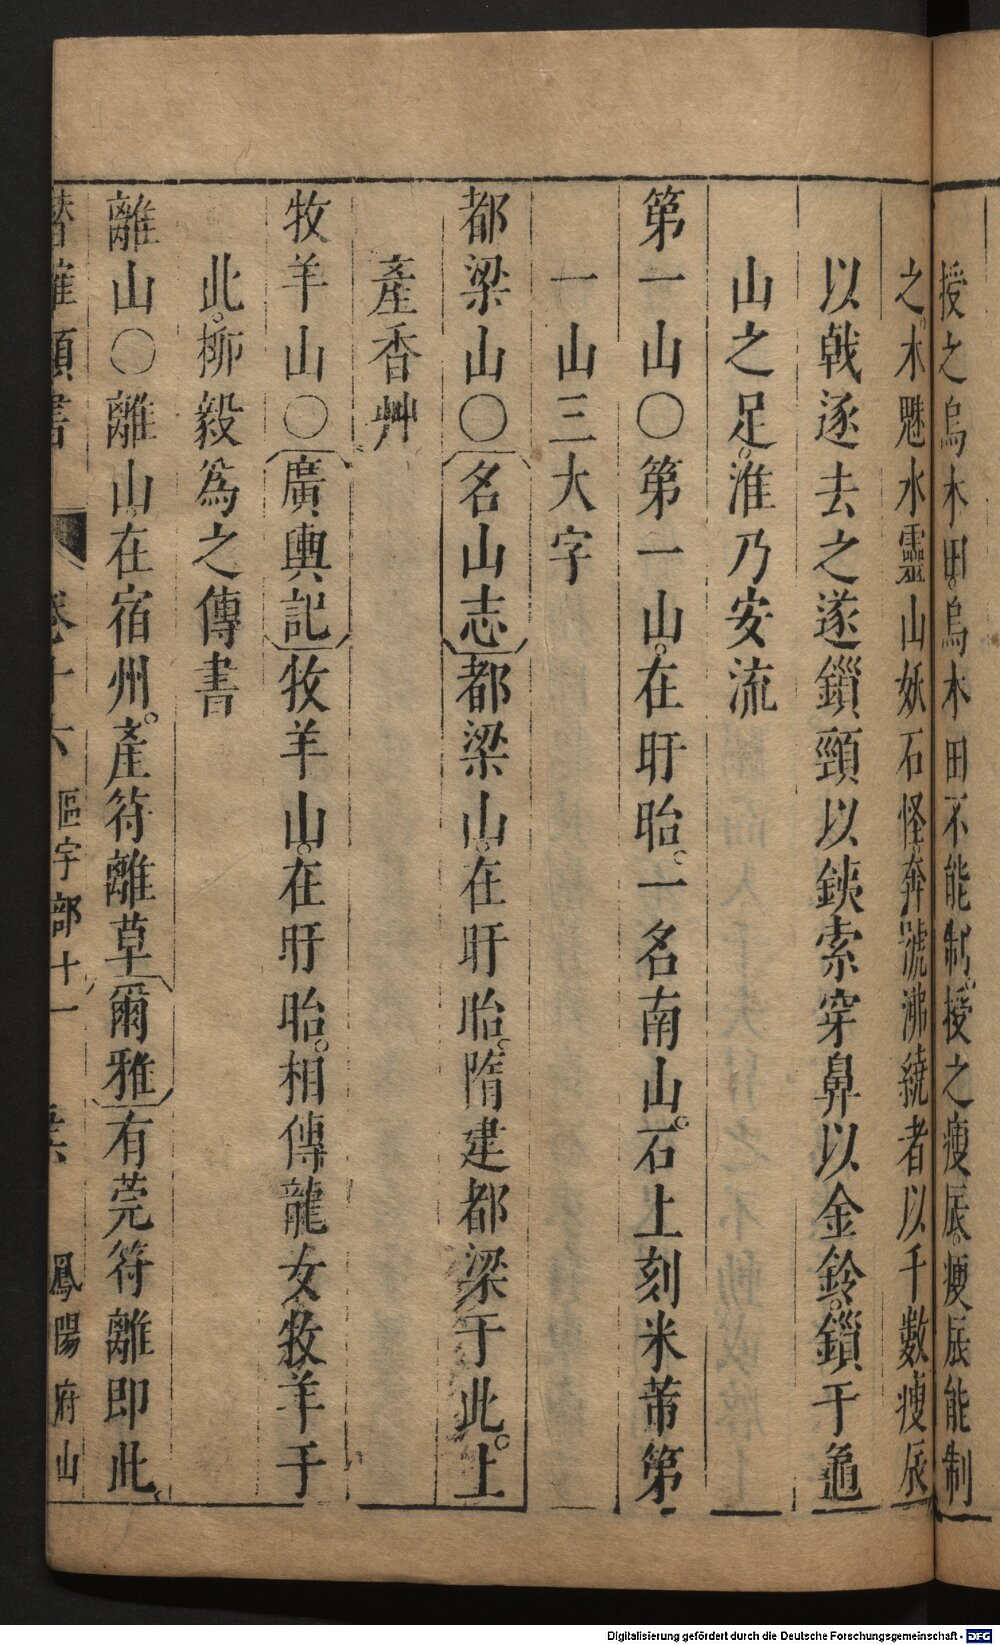 授之烏木田。烏木田不能制。授之瘦辰。瘦辰能制
之。水魅水靈山妖石怪奔號沸繞者以千數瘦辰
以戟逐去之遂鎻頸以鐵索穿鼻以金鈴。鎻于龜
山之足。淮乃安流
第一山〇第一山。在盱眙。一名南山。石上刻米芾第
一山三大字
都梁山〇名山志都梁山。在盱眙。隋建都梁于此。上
產香艸
牧羊山〇廣輿記牧羊山。在盱眙。相傳龍女牧羊于
此。柳毅為之傳書
離山〇離山在宿州。產符離草爾雅有莞符離即此。
卷十六 區宇部十一 鳳陽府山
Digitalisierung gefördert durch die Deutsche Forschungsgemeinschaft - DFG